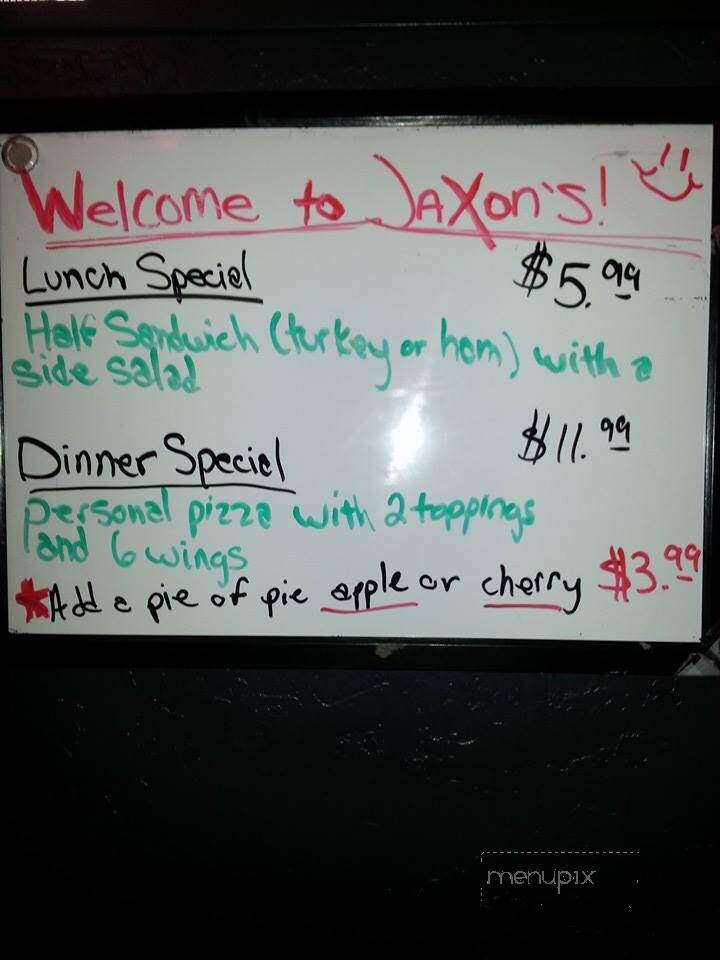 Welcome to JAXon's!
Lunch Special $5.99
Half Sandwich (turkey or ham) with a
side salad
Dinner Special $11.99
personal pizza with 2 toppings
and 6 wings
*Add a pie of pie apple or cherry $3.99
menupix